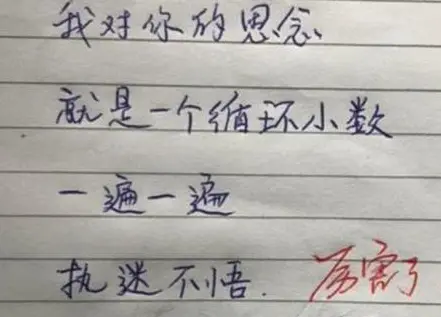 我对你的思念
就是一个循环小数
一遍一遍
执迷不悟. 厉害了